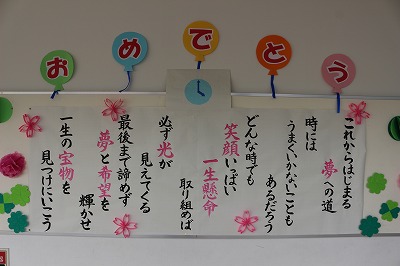 おめでとう
これからはじまる
夢への道
時には
うまくいかないことも
あるだろう
どんな時でも
笑顔いっぱい
一生懸命
取り組めば
必ず光が
見えてくる
最後まで諦めず
夢と希望を
輝かせ
一生の宝物を
見つけにいこう